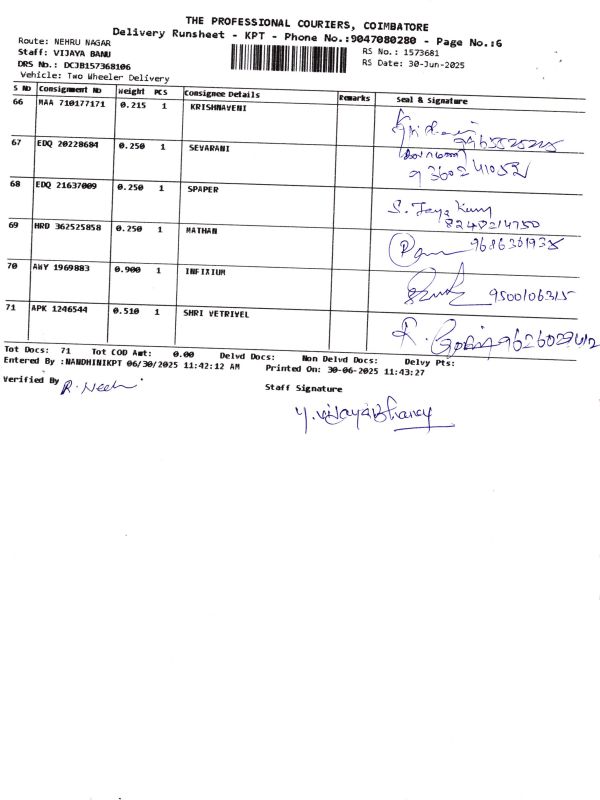 THE PROFESSIONAL COURIERS, COIMBATORE
Delivery Runsheet - KPT - Phone No.:9047080280 - Page No.:6
Route: NEHRU NAGAR
Staff: VIJAYA BANU
DRS No.: DCJB157368106
Vehicle: Two Wheeler Delivery
RS No.: 1573681
RS Date: 30-Jun-2025
S No Consignment No Weight PCS Consignee Details Remarks Seal & Signature
66 MAA 710177171 0.215 1 KRISHNAVENI
67 EDQ 20228684 0.250 1 SEVARANI
68 EDQ 21637009 0.250 1 SPAPER S. Jaya
8240214750
69 HRD 362525858 0.250 1 MATHAN 9686301935
70 AWY 1969883 0.900 1 INFIXIUM 9500106315
71 APK 1246544 0.510 1 SHRI VETRIVEL
Tot Docs: 71 Tot COD Amt: 0.00 Delvd Docs: Non Delvd Docs: Delvy Pts:
Entered By :NANDHINIKPT 06/30/2025 11:42:12 AM Printed On: 30-06-2025 11:43:27
Verified By
Staff Signature